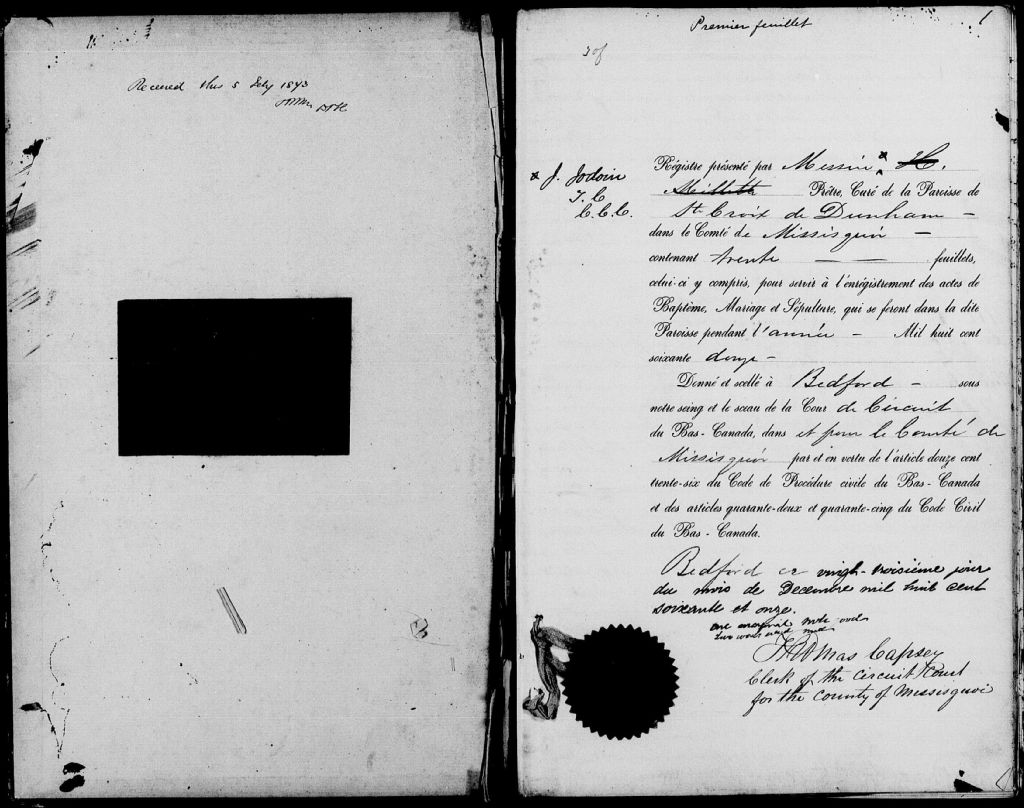 Received this 5 Feby 1873
Premier feuillet
1
Régistre présenté par Messire * H.
* J. Jodoin
T. C.
C. C. C.
Millette Prêtre, Curé de la Paroisse de
Ste Croix de Dunham –
dans le Comté de Missisquoi –
contenant trente — — feuillets,
celui-ci y compris, pour servir à l'enrégistrement des actes de
Baptême, Mariage et Sépulture, qui se feront dans la dite
Paroisse pendant l'année – Mil huit cent
soixante douze –
Donné et scellé à Bedford – sous
notre seing et le sceau de la Cour de Circuit
du Bas-Canada, dans et pour le Comté de
Missisquoi par et en vertu de l'article douze cent
trente-six du Code de Procédure civile du Bas-Canada
et des articles quarante-deux et quarante-cinq du Code Civil
du Bas-Canada.
Bedford ce vingt-troisième jour
du mois de Decembre mil huit cent
soixante et onze.
one marginal note
two words
Thomas Capsey
Clerk of the Circuit Court
for the County of Missisquoi